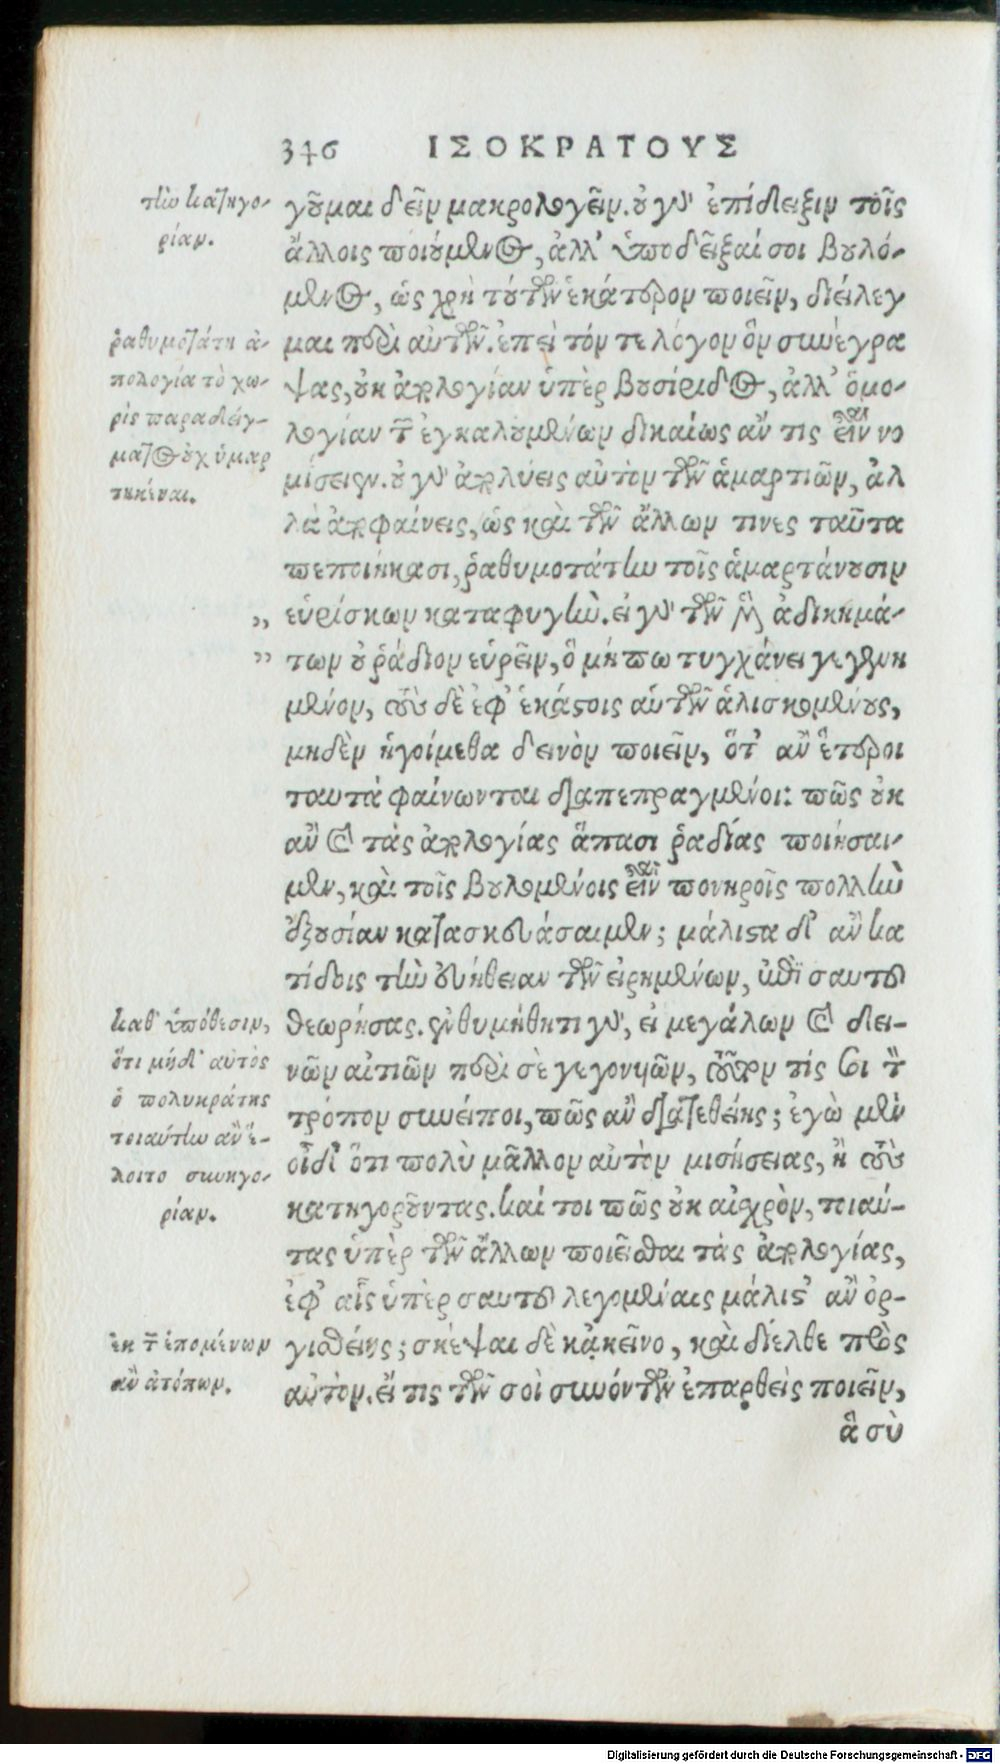 346 ΙΣΟΚΡΑΤΟΥΣ
τὴν κατηγο-
ρίαν.
γοῦμαι δεῖν μακρολογεῖν. οὐ γὰρ ἐπίδειξιν τοῖς
ἄλλοις ποιούμενος, ἀλλ' ὑποδεῖξαί σοι βουλό-
μενος, ὡς χρὴ τούτων ἑκάτερον ποιεῖν, διείλεγ
μαι περὶ αὐτῶν. ἐπεὶ τόν τε λόγον ὃν συνέγρα
ψας, οὐκ ἀπολογίαν ὑπὲρ βουσίριδος, ἀλλ' ὁμο-
λογίαν τῶν ἐγκαλουμένων δικαίως ἄν τις εἶναι νο
μίσειεν. οὐ γὰρ ἀπολύεις αὐτὸν τῶν ἁμαρτιῶν, ἀλ
λὰ ἀποφαίνεις, ὡς καὶ τῶν ἄλλων τινες ταῦτα
πεποιήκασι, ῥαθυμοτάτην τοῖς ἁμαρτάνουσιν
εὑρίσκων καταφυγὴν. εἰ γὰρ τῶν μὲν ἀδικημά-
των οὐ ῥάδιον εὑρεῖν, ὃ μήπω τυγχάνει γεγενη
μένον, τοὺς δὲ ἐφ' ἑκάστοις αὐτῶν ἁλισκομένους,
μηδὲν ἡγοίμεθα δεινὸν ποιεῖν, ὅτ' ἂν ἕτεροι
ταυτὰ φαίνωνται διαπεπραγμένοι: πῶς οὐκ
ἂν καὶ τὰς ἀπολογίας ἅπασι ῥαδίας ποιήσαι-
μεν, καὶ τοῖς βουλομένοις εἶναι πονηροῖς πολλὴν
ἐξουσίαν κατασκευάσαιμεν; μάλιστα δ' ἂν κα
τίδοις τὴν εὐήθειαν τῶν εἰρημένων, ἐπὶ σαυτοῦ
θεωρήσας. ἐνθυμήθητι γὰρ, εἰ μεγάλων καὶ δει-
νῶν αἰτιῶν περὶ σὲ γεγονυιῶν, τοῦτόν τίς σοι τὸν
τρόπον συνείποι, πῶς ἂν διατεθείης; ἐγὼ μὲν
οἶδ' ὅτι πολὺ μᾶλλον αὐτὸν μισήσειας, ἢ τοὺς
κατηγοροῦντας. καί τοι πῶς οὐκ αἰσχρὸν, τοιαύ-
τας ὑπὲρ τῶν ἄλλων ποιεῖσθαι τὰς ἀπολογίας,
ἐφ' αἷς ὑπὲρ σαυτοῦ λεγομέναις μάλιστ' ἂν ὀρ-
γισθείης; σκέψαι δὲ κἀκεῖνο, καὶ δίελθε πρὸς
αὑτὸν. εἴ τις τῶν σοὶ συνόντων ἐπαρθεὶς ποιεῖν,
ἃ σὺ
ῥαθυμοτάτη ἀ-
πολογία τὸ χω-
ρὶς παραδείγ-
ματος οὐχ ἡμαρ
τηκέναι.
„
„
καθ' ὑπόθεσιν,
ὅτι μήδ' αὐτὸς
ὁ πολυκράτης
τοιαύτην ἂν ἕ-
λοιτο συνηγο-
ρίαν.
ἐκ τῶν ἑπομένων
ἂν ἀτόπων.
Digitalisierung gefördert durch die Deutsche Forschungsgemeinschaft - DFG